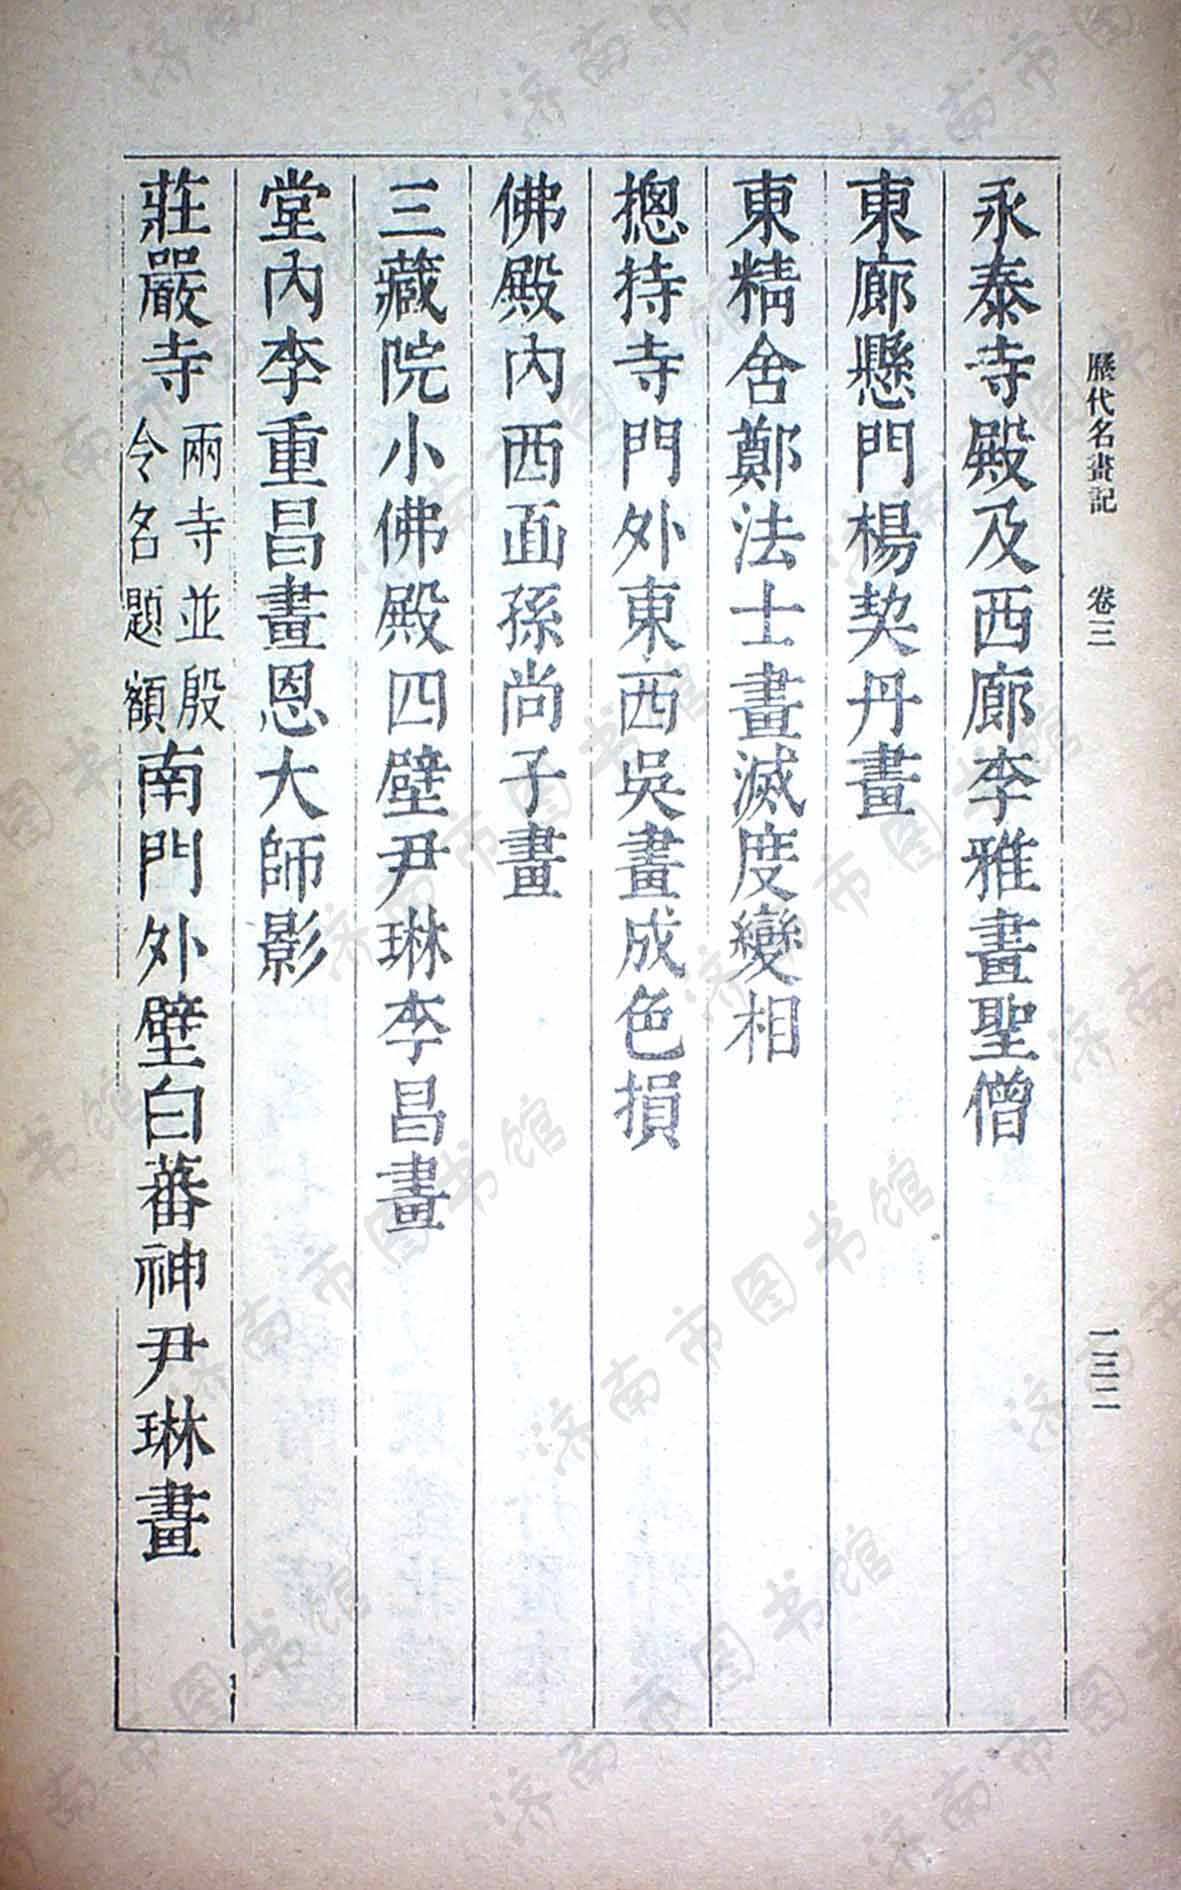 歷代名畫記 卷三 一三二
永泰寺殿及西廊李雅畫聖僧
東廊懸門楊契丹畫
東精舍鄭法士畫滅度變相
摠持寺門外東西吳畫成色損
佛殿內西面孫尚子畫
三藏院小佛殿四壁尹琳李昌畫
堂內李重昌畫恩大師影
莊嚴寺
兩寺並殷
令名題額
南門外壁白蕃神尹琳畫
济南市图书馆